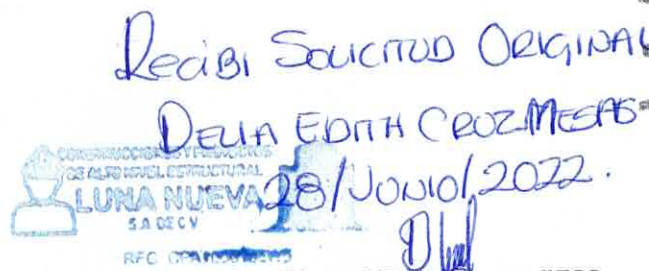 Recibi Solicitud Original
Delia Edith Cruz
28/Junio/2022.
CONSTRUCCIONES Y PROYECTOS
DE ALTO NIVEL ESTRUCTURAL
LUNA NUEVA
S.A DE C V
RFC